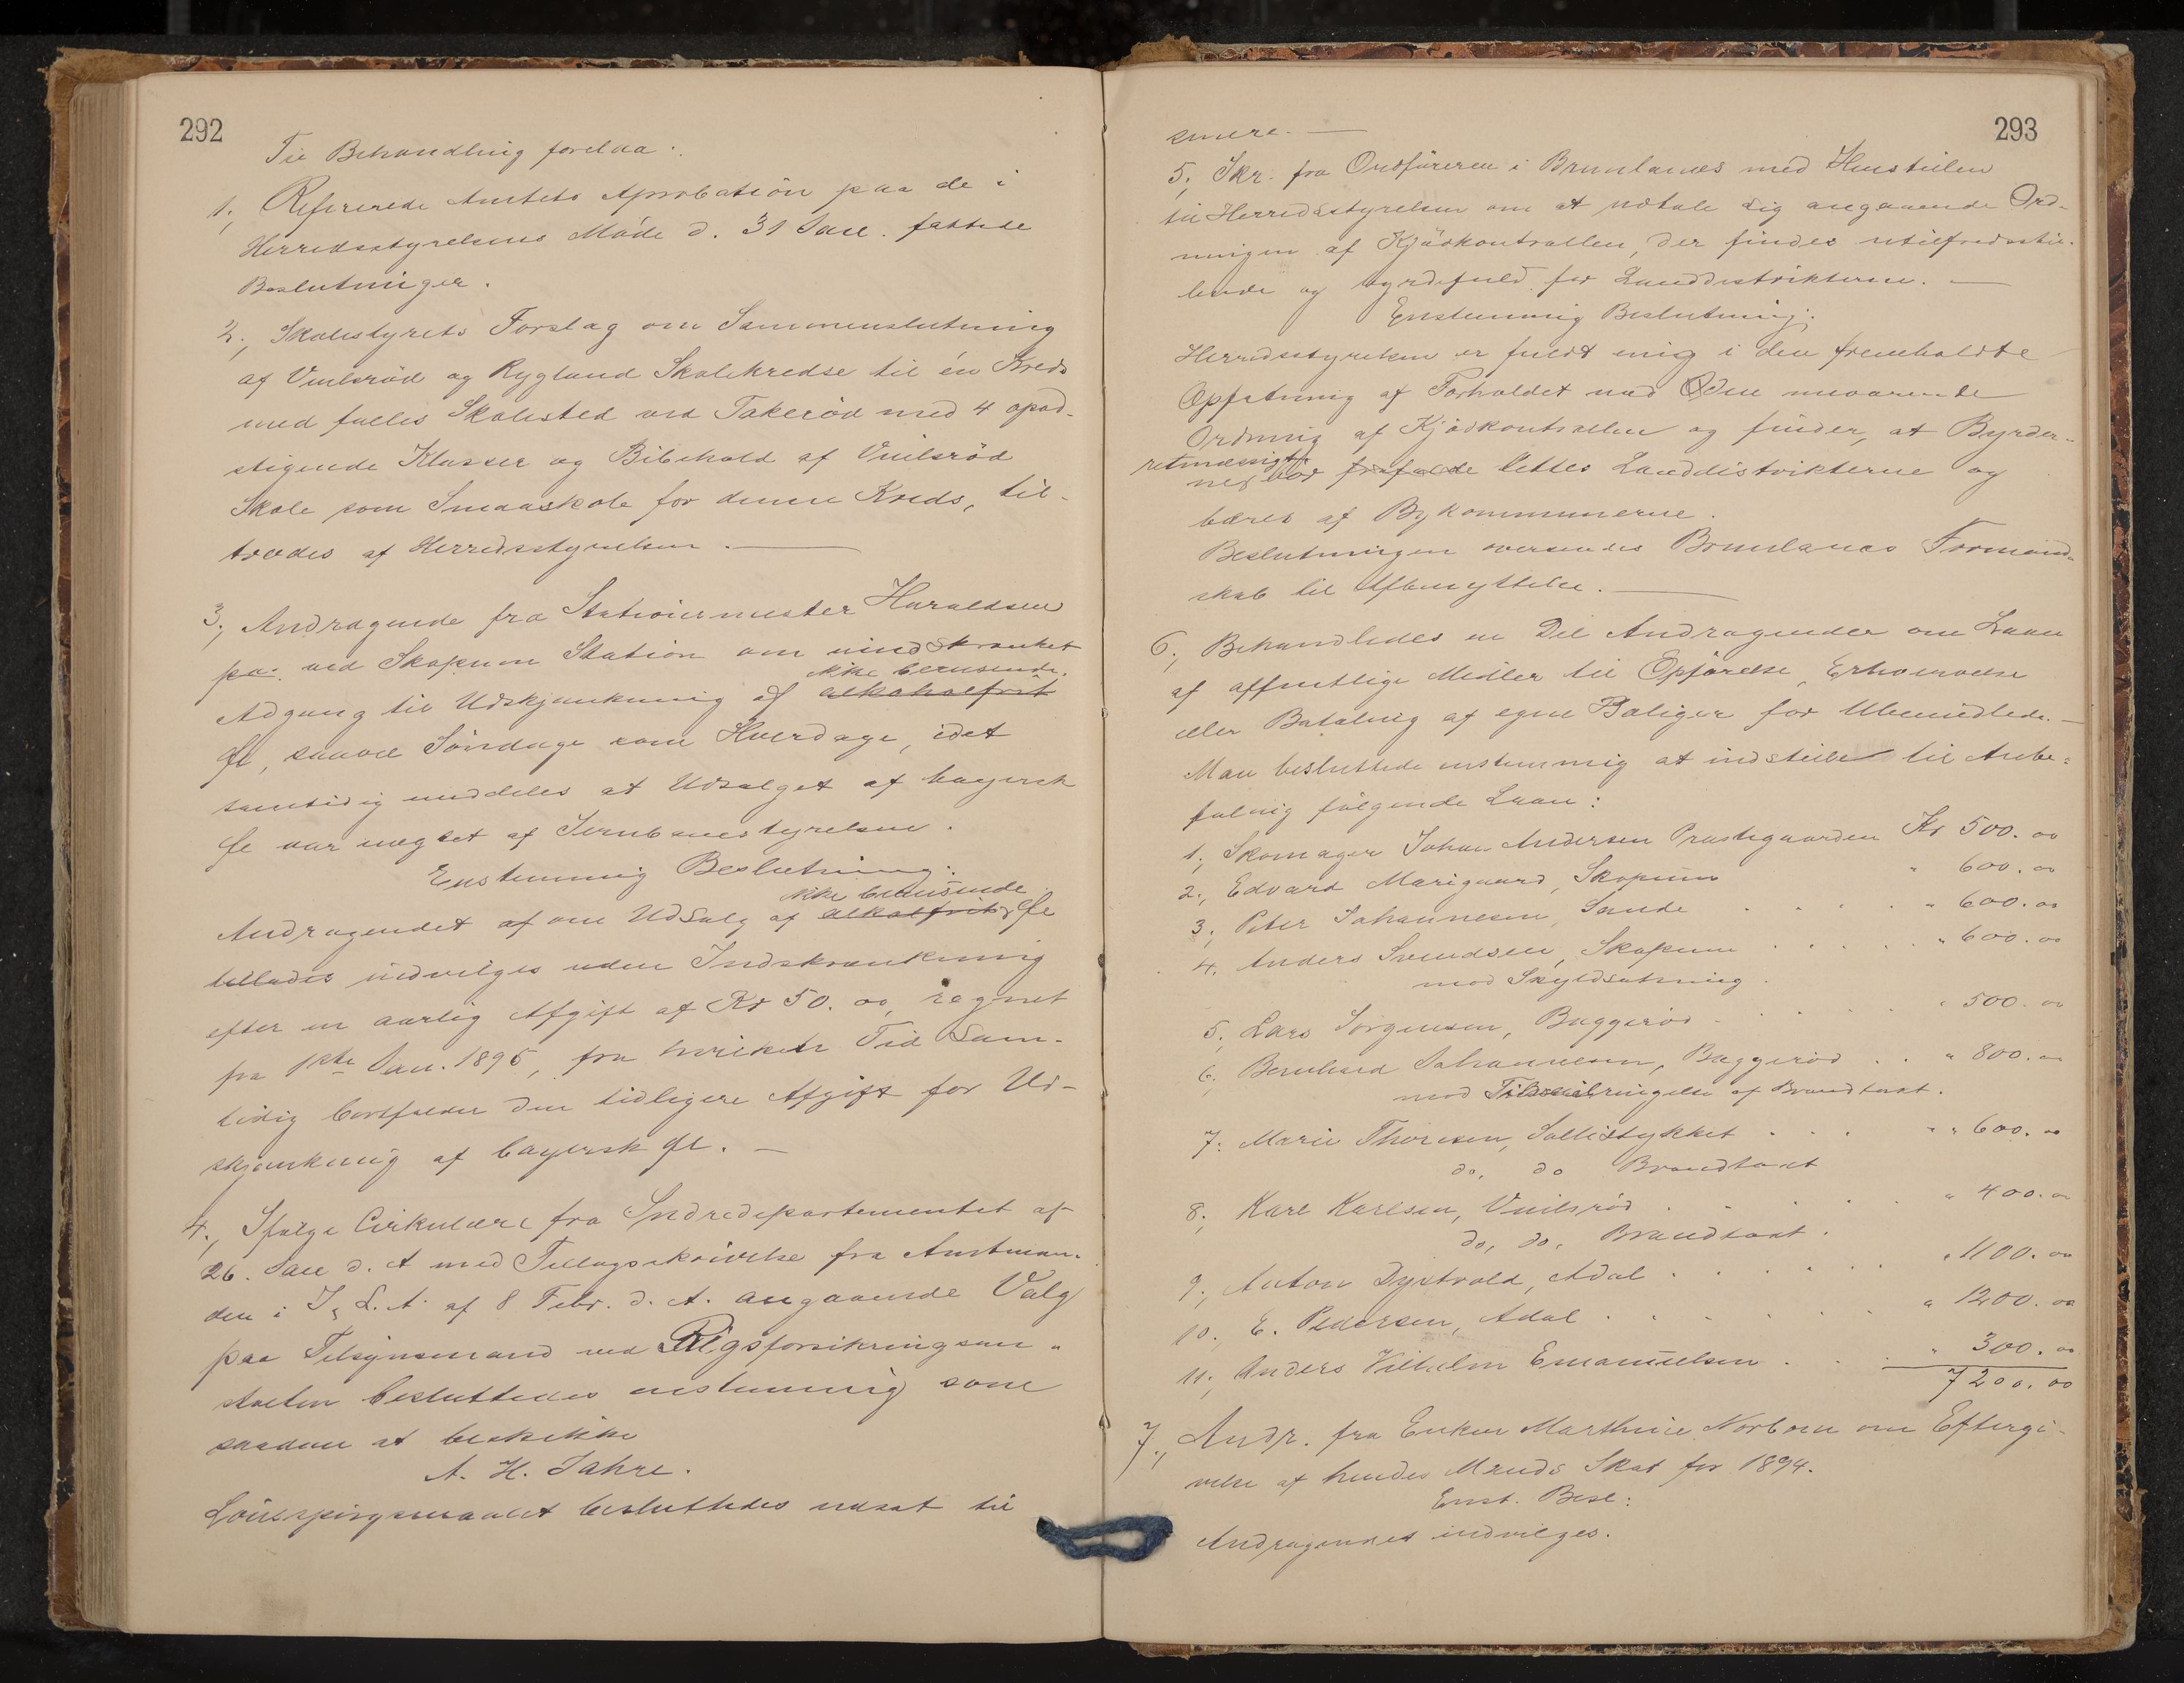 292
Til Behandling forelaa:
1., Refererede Amtets Aprobation paa de i
Herredsstyrelsens Møde d. 31 Jan. fattede
Beslutninger.
2., Skolestyrets Forslag om Sammenslutning
af Vinlsrød og Rygland Skolekredse til én Kreds
med fælles Skolested ved Takerød med 4 opad-
stigende Klasser og Bibehold af Vinlsrød
Skole som Smaaskole for denne Kreds, til-
trædes af Herredsstyrelsen. —
3., Andragende fra Stationsmester Haraldsen
paa ved Skopum Station om uindskrænket
ikke berusende
Adgang til Udskjænkning af alkoholfrit
Øl, saavel Søndage som Hverdage, idet
samtidig meddeles at Udsalget af bayersk
Øl var nægtet af Jernbanestyrelsen.
Enstemmig Beslutning:
ikke berusende
Andragendet af om Udsalg af alkolfrit Øl
tillades indvilges uden Indskrænkning
efter en aarlig Afgift af Kr 50.00, regnet
fra 1ste Jan. 1895, fra hvilken Tid Sam-
tidig bortfalder den tidligere Afgift for Ud-
skjænkning af bayersk Øl. —
4., Ifølge Cirkulære fra Indredepartementet af
26. Jan d. A med Tillægsskrivelse fra Amtman-
den i J. & L. A. af 8 Febr. d. A. angaaende Valg
paa Tilsynsmand ved Rigsforsikringsan-
stalten besluttedes enstemmig som
saadan at beskikke
A. H. Jahre.
Lønsspørgsmaalet besluttedes udsat til
293
senere. —
5., Skr. fra Ordføreren i Brunlanes med Henstillen
til Herredsstyrelsen om at udtale sig angaaende Ord-
ningen af Kjødkontrollen, der findes utilfredsstil-
lende og byrdefuld for Landdistrikterne. —
Enstemmig Beslutning:
Herredsstyrelsen er fuldt enig i den fremholdte
Opfatning af Forholdet med den nuværende
Ordning af Kjødkontrollen og finder, at Byrder-
retmæssigt
ne bør frafalde lettes Landdistrikterne og
bæres af Bykommunerne.
Beslutningen oversendes Brunlanes Formand-
skab til Afbenyttelse. —
6., Behandledes en Del Andragender om Laan
af offentlige Midler til Opførelse, Erhvervelse
eller Betaling af egne Boliger for Ubemidlede. —
Man besluttede enstemmig at indstille til Anbe-
faling følgende Laan:
1., Skomager Johan Andersen Prestegaarden Kr 500.00
2., Edvard Marigaard, Skopum " 600.00
3., Peter Johannesen, Sande . . . . " 600.00
4. Anders Svendsen, Skopum . . . . . " 600.00
mod Skyldsætning.
5., Lars Jørgensen, Buggerød . . . . . " 500.00
6., Bernhard Johannesen, Buggerød . . " 800.00
mod Tilveiebringelse af Brandtaxt.
7. Marie Thoresen, Solliestykket . . . " 600.00
do, do Brandtaxt
8., Karl Karlsen, Vinlsrød . . . . . " 400.00
do, do, Brandtaxt.
9., Anton Dystvold, Adal . . . . . . " 1100.00
10., E. Pedersen, Adal . . . . . . " 1200.00
11., Anders Vilhelm Emanuelsen . . . " 300.00
7200.00
7., Andr. fra Enken Marthine Norbom om Eftergi-
velse af hendes Mands Skat for 1894.
Enst. Besl:
Andragendet indvilges.